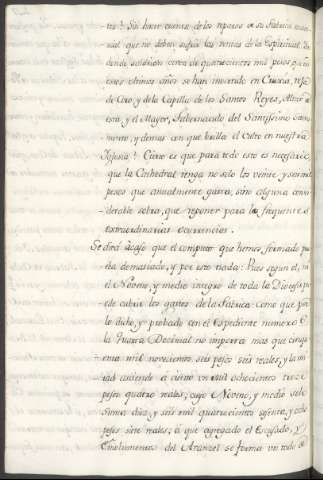 tes? Sin hacer cuenta de los reparos de su Fabrica mate-
rial que no deben suplir las rentas de la Espiritual. En
donde
cerca de quatrocientos mil pesos que en
estos ultimos años se han invertido en Cruxia, reja
de Coro, y de la Capilla de los Santos Reyes, Altar de
esta, y el Mayor, Tabernaculo del Santisimo Sacra-
mento, y demas con que brilla el Culto en nuestra
Iglesia? Cierto es que para todo esto es necesario,
que la Cathedral tenga no solo los veinte y seis mil
pesos que anualmente gasta, sino alguna consi-
derable sobra, que reponer para las frequentes
extraordinarias ocurrencias.
Se dirá acaso que el computo que hemos formado prue-
ba demasiado, y por esto nada: Pues segun el, ni
el Noveno, y medio integro de toda la Diocesis pue-
de cubrir los gastos de la Fabrica. Como que por
lo dicho, y probado con el Expediente numero 6
la Gruesa Decimal no importa mas que cinqu-
enta mil novecientos seis pesos seis reales, y la mi-
tad asciende a ciento un mil ochocientos trece
pesos quatro reales, cuyo Noveno, y medio
diez, y seis mil quatrocientos sesenta, y ocho
pesos siete reales; á que agregado el Escusado, y
Emolumentos del Aranzel se forma un todo de